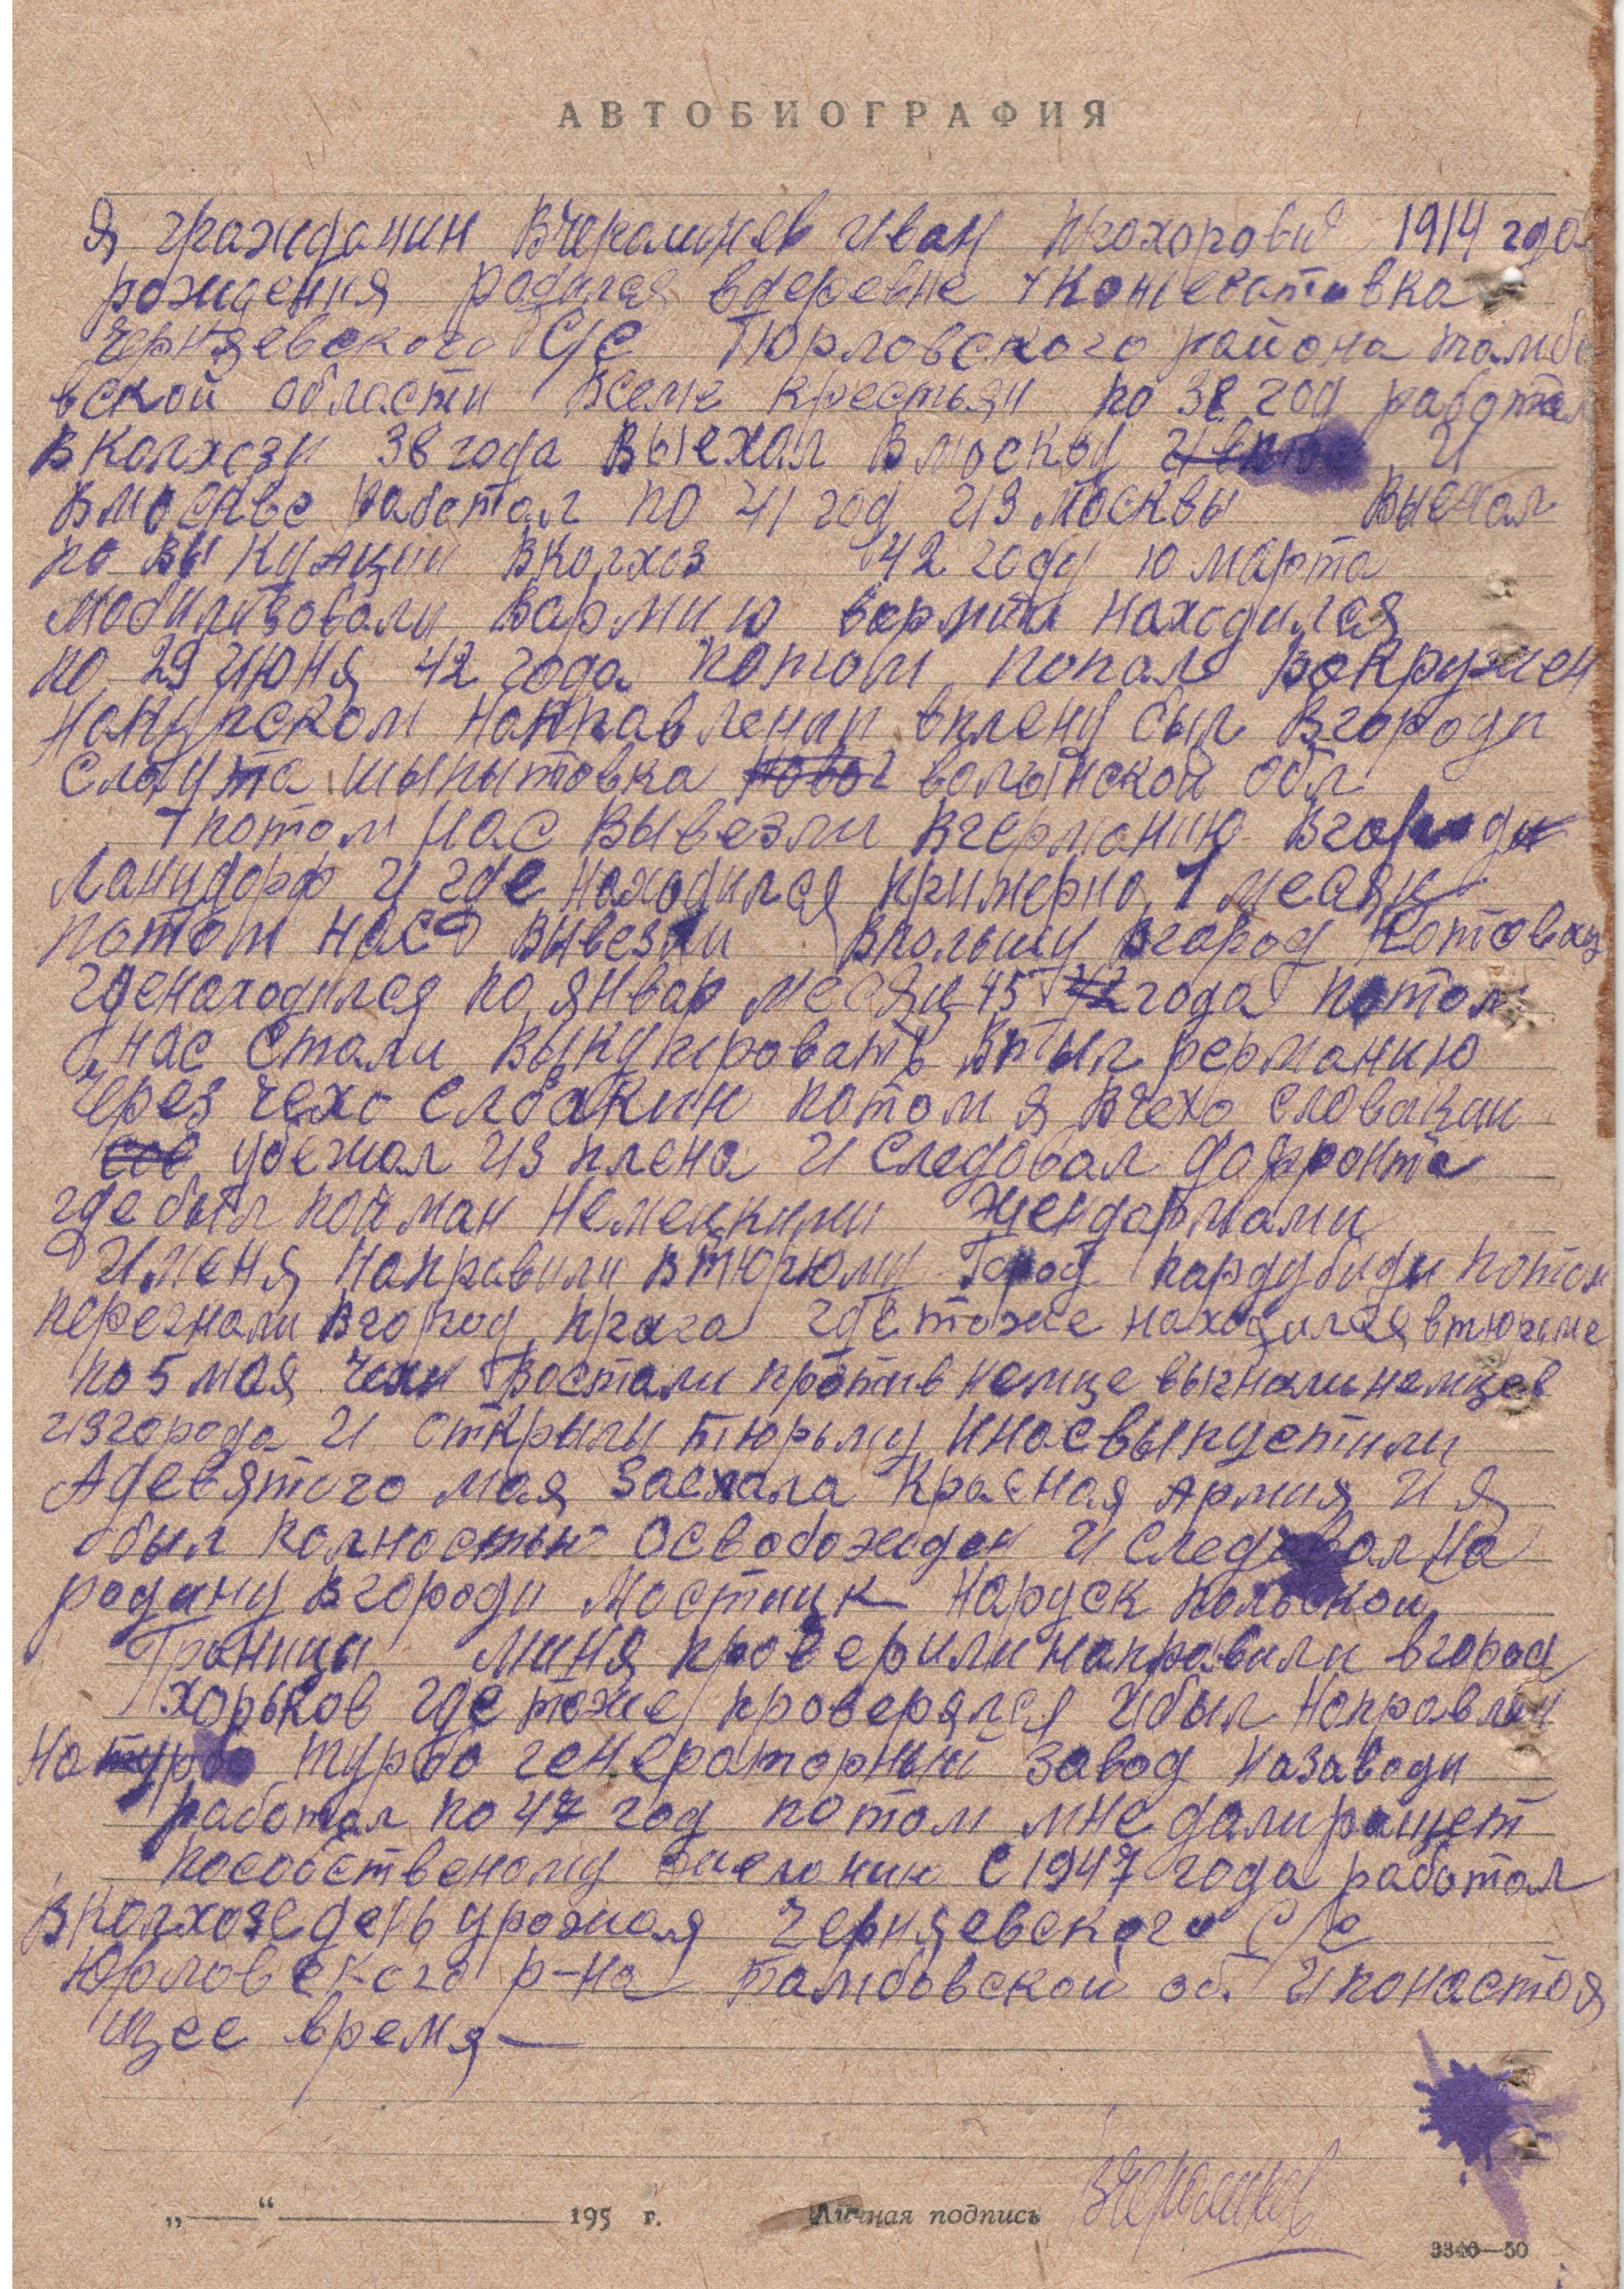 АВТОБИОГРАФИЯ
Я гражданин Вчерашнев Иван Прохорови 1914 года
рождения родился вдеревне
Черняевского С/С Юрловского района тамбо
вской области всеме крестьян по 38 год работал
вколхози 38 года выехал вмоскву и
вмоскве работал по 41 год из москвы выехал
по выкуации вколхоз 42 году 10 марта
мобилизовали вармию вармии находился
по 29 июня 42 года потом попал вокружен
накурском направлении вплену был вгороди
Слаута шыпытовка волынской обл
потом нас вывезли вгерманию вгороди
Ланцдорф и где находился примерно 1 месяц
потом нас вывезли впольшу вгород Котовиц
гденаходился по январ месяц 45 года потом
нас стали выкуировать втыл германию
через чехо словакии потом я вчехо словакии
убежал из плена и следовал дофронта
где был пойман немецкими жендармами
именя направили втюрюму город пардубиди потом
перегнали вгород прага где тоже находился втюрьме
по 5 мая чехи востали против немце выгнали немцев
изгорода и открыли тюрьму инасвыпустили
Адевятого мая заехала Красная Армия и я
был полностью освобожден и следовал на
родину вгороди Мостицк наруск польской
границы миня проверили направили вгород
харьков где тоже проверялся ибыл направлен
на турбо генераторный завод назаводи
работал по 47 год потом мне далиращет
пособственому жиланию с 1947 года работал
вколхозе день урожая Черняевского с/с
Юрловского р-на тамбовской об. ипонастоя
щее время —
„ “ 195 г. Личная подпись Вчерашнев
3340—50